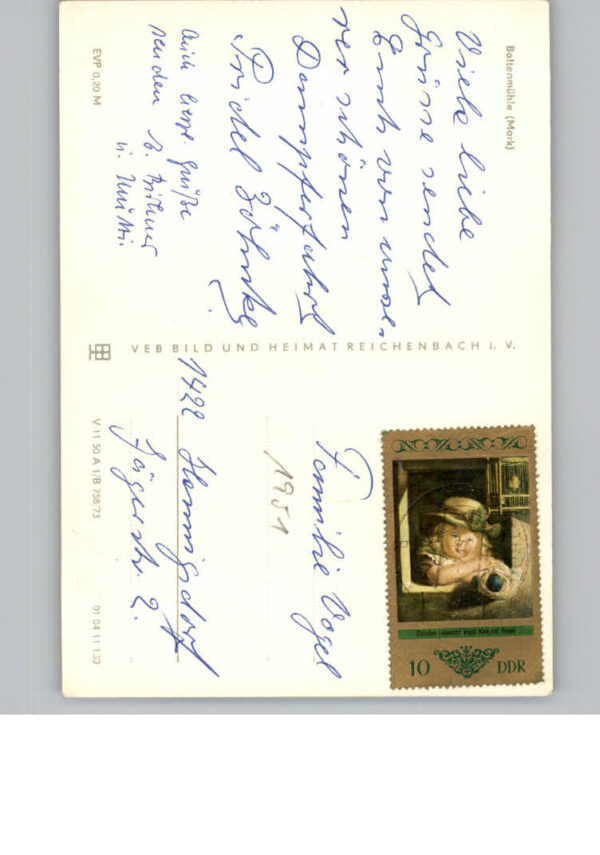 Boltenmühle (Mark)
Viele liebe
Grüsse sendet
Euch von unse-
rer schönen
Dampferfahrt
Auch herzl. Grüße
senden
u.
EVP 0,20 M
VEB BILD UND HEIMAT REICHENBACH i. V.
Familie Vogel
1951
1422 Hennigsdorf
Jägerstr. 2.
V 11 50 A 1/B 758/73
01 04 11 130
10 DDR